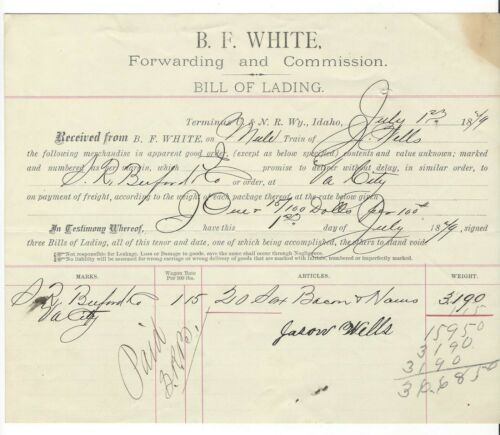 B. F. WHITE,
Forwarding and Commission.
BILL OF LADING.
Terminus U. & N. R. Wy., Idaho, July 1st 1879
Received from B. F. WHITE, on Mule Train of J. Wells
the following merchandise in apparent good order, (except as below specified) contents and value unknown; marked
and numbered as per margin, which I promise to deliver without delay, in similar order, to
S. R. Buford & Co or at Va City
on payment of freight, according to the weight of each package thereof, at the rate below given
One & 15/100 Dolls per 100
In Testimony Whereof, I have this 1st day of July 1879, signed
three Bills of Lading, all of this tenor and date, one of which being accomplished, the others to stand void.
Not responsible for Leakage. Loss or Damage to goods, save the same shall occur through Negligence.
No liability will be assumed for wrong carriage or wrong delivery of goods that are marked with initials, numbered or imperfectly marked.
MARKS. Wagon Rate Per 100 lbs. ARTICLES. WEIGHT.
S. R. Buford & Co 115 20 Sax Bacon & Hams 3190
Va City 15
Jason Wells 15950
3190
3190
36.685 0
Paid